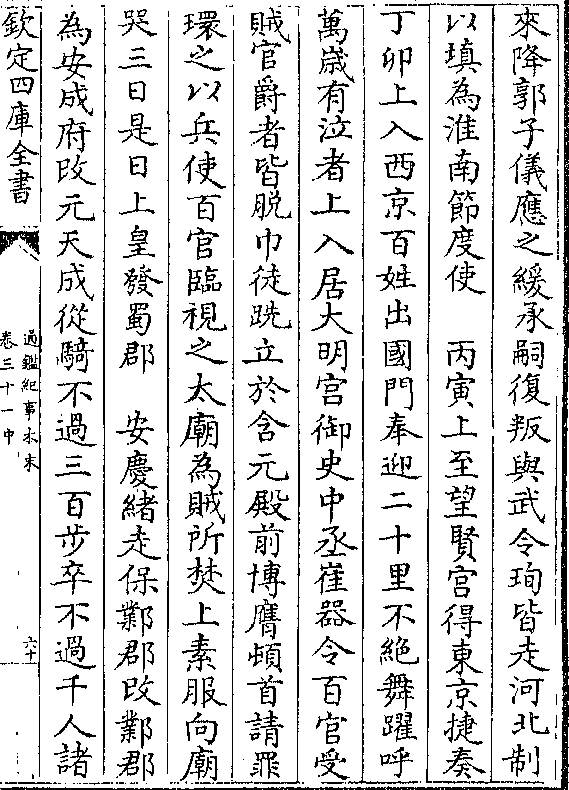 來降郭子儀應之緩承嗣復叛與武令珣皆走河北制
以塡為淮南節度使　丙寅上至望賢宫得東京捷奏
丁卯上入西京百姓出國門奉迎二十里不絶舞躍呼
萬歲有泣者上入居大明宫御史中丞崔器令百官受
賊官爵者皆脱巾徒跣立於含元殿前博膺頓首請罪
環之以兵使百官臨視之太廟為賊所焚上素服向廟
哭三日是日上皇發蜀郡　安慶緒走保鄴郡改鄴郡
為安成府改元天成從騎不過三百步卒不過千人諸
欽定四庫全書
通鑑紀事本末
卷三十一中
六十